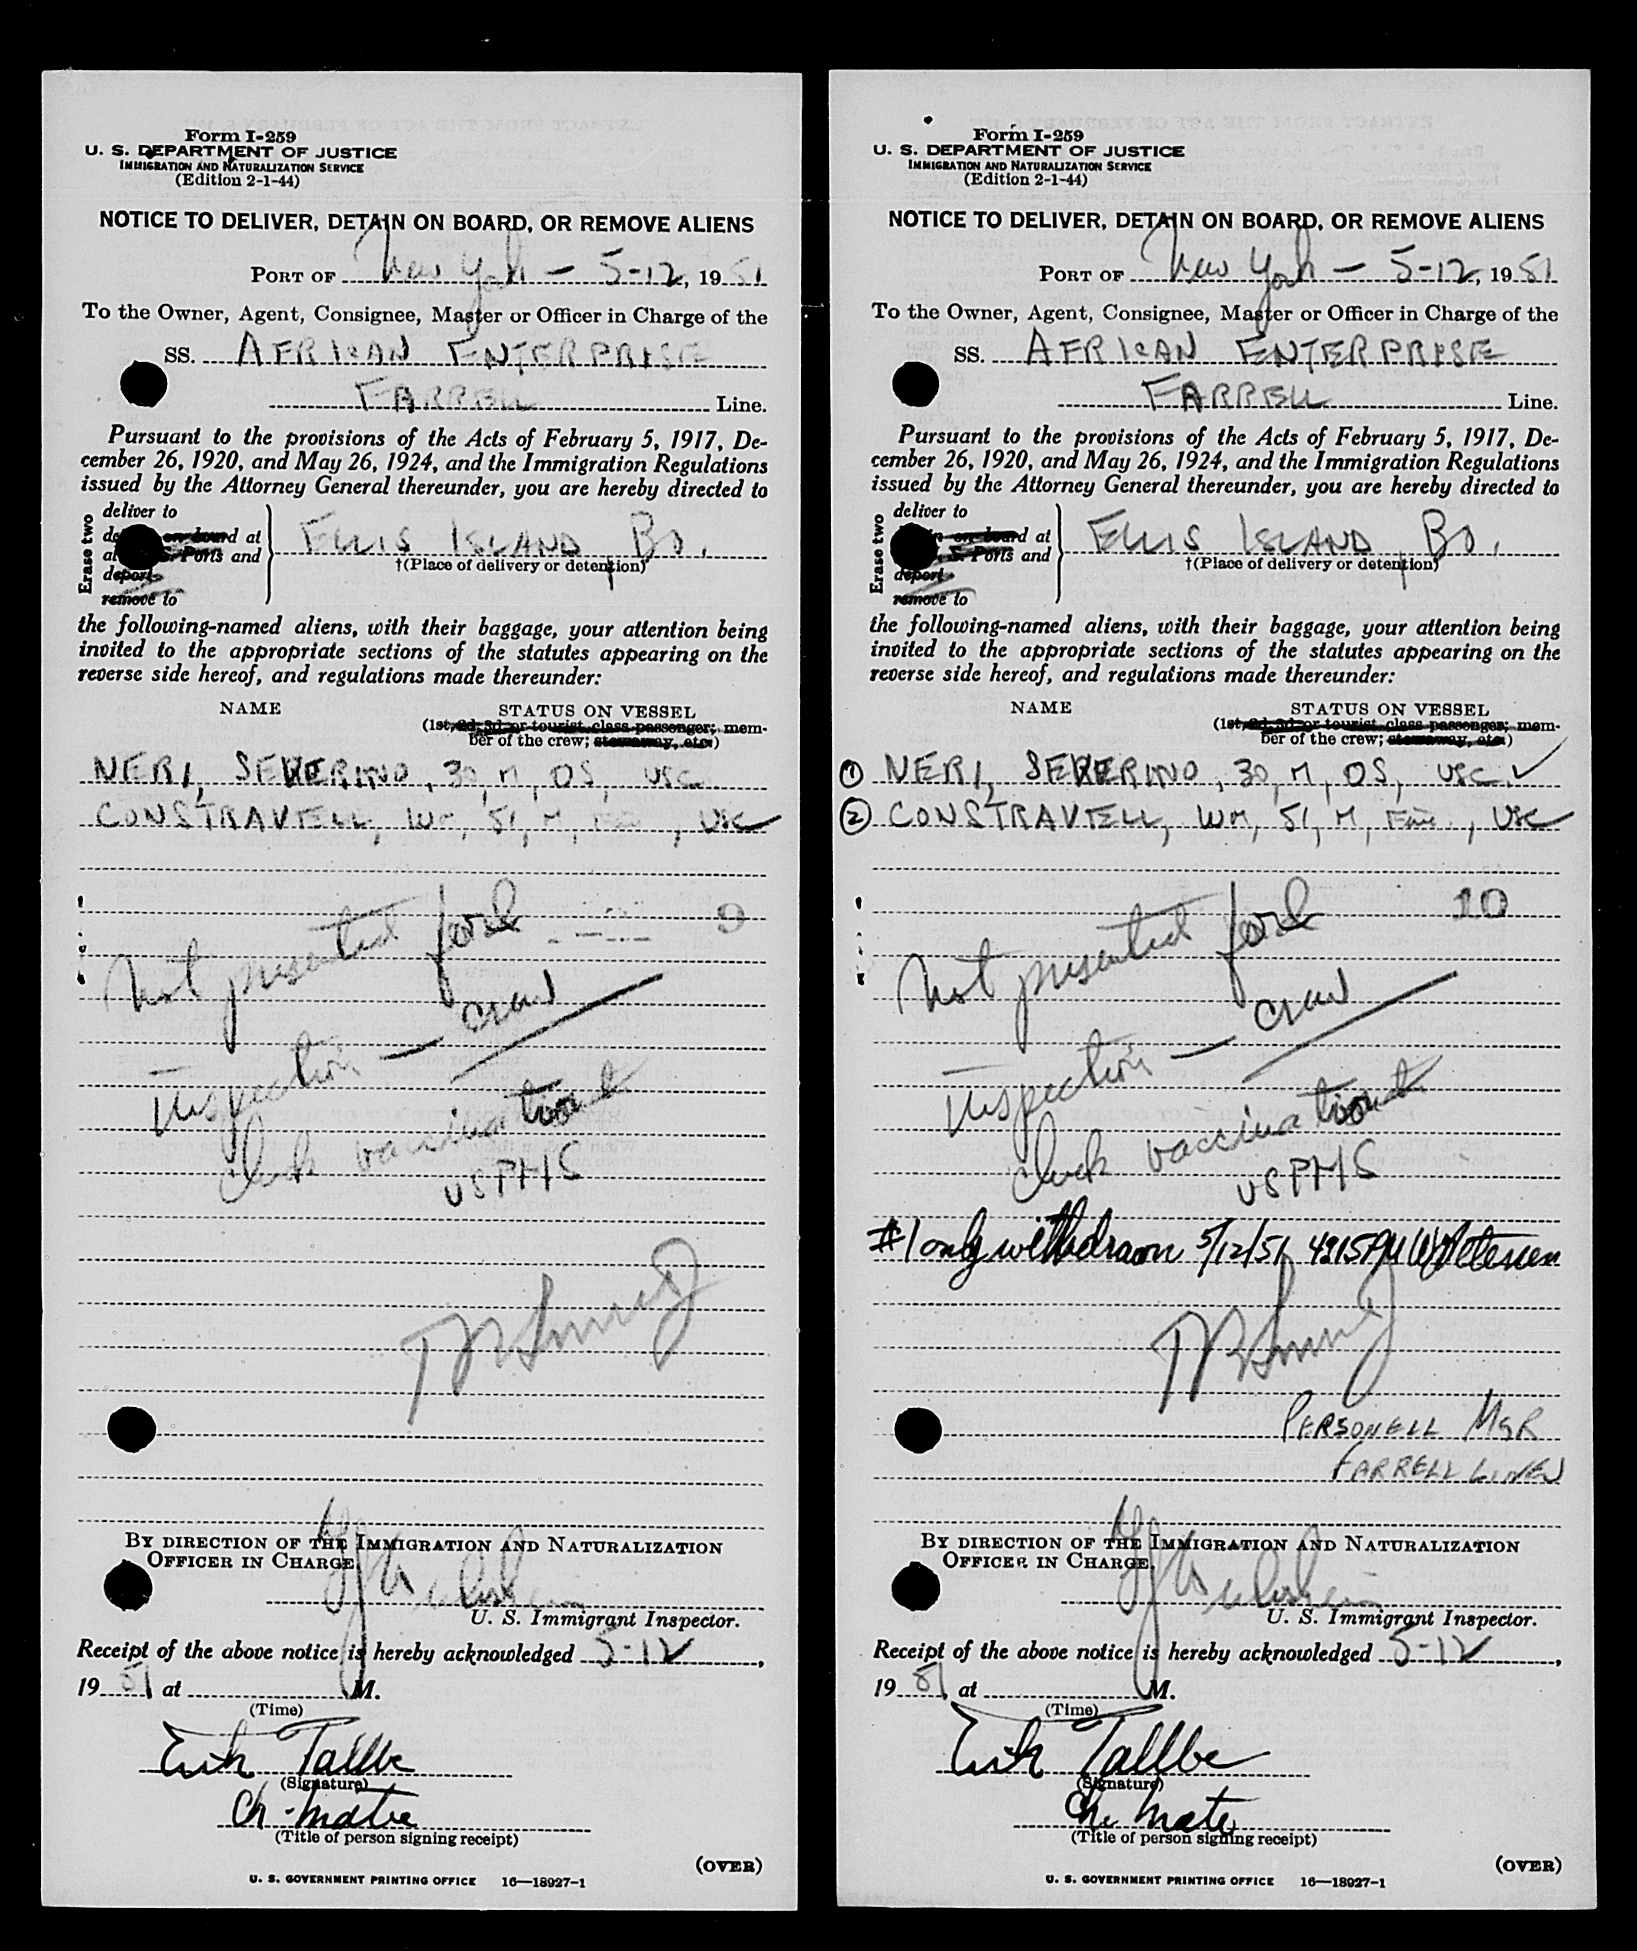 Form I-259
U. S. DEPARTMENT OF JUSTICE
IMMIGRATION AND NATURALIZATION SERVICE
(Edition 2-1-44)
NOTICE TO DELIVER, DETAIN ON BOARD, OR REMOVE ALIENS
PORT OF New York - 5-12, 1951
To the Owner, Agent, Consignee, Master or Officer in Charge of the
SS. AFRICAN ENTERPRISE
FARRELL Line.
Pursuant to the provisions of the Acts of February 5, 1917, De-
cember 26, 1920, and May 26, 1924, and the Immigration Regulations
issued by the Attorney General thereunder, you are hereby directed to
Erase two
deliver to
on board at
Ports and
deport
remove to
ELLIS ISLAND, BO.
†(Place of delivery or detention)
the following-named aliens, with their baggage, your attention being
invited to the appropriate sections of the statutes appearing on the
reverse side hereof, and regulations made thereunder:
NAME STATUS ON VESSEL
(1st, 2d, 3d or tourist class passenger; mem-
ber of the crew; stowaway, etc.)
NERI, SEVERINO, 30, M, OS, USC
CONSTRAVELL, WM, 51, M, , USC
9
Not presented for
inspection - crew
check vaccination
USPHS
BY DIRECTION OF THE IMMIGRATION AND NATURALIZATION
OFFICER IN CHARGE.
U. S. Immigrant Inspector.
Receipt of the above notice is hereby acknowledged 5-12,
1951 at M.
(Time)
Erik Tallbe
(Signature)
Ch. Mate
(Title of person signing receipt)
(OVER)
U. S. GOVERNMENT PRINTING OFFICE 16—18927-1
Form I-259
U. S. DEPARTMENT OF JUSTICE
IMMIGRATION AND NATURALIZATION SERVICE
(Edition 2-1-44)
NOTICE TO DELIVER, DETAIN ON BOARD, OR REMOVE ALIENS
PORT OF New York - 5-12, 1951
To the Owner, Agent, Consignee, Master or Officer in Charge of the
SS. AFRICAN ENTERPRISE
FARRELL Line.
Pursuant to the provisions of the Acts of February 5, 1917, De-
cember 26, 1920, and May 26, 1924, and the Immigration Regulations
issued by the Attorney General thereunder, you are hereby directed to
Erase two
deliver to
on board at
Ports and
deport
remove to
ELLIS ISLAND, BO.
†(Place of delivery or detention)
the following-named aliens, with their baggage, your attention being
invited to the appropriate sections of the statutes appearing on the
reverse side hereof, and regulations made thereunder:
NAME STATUS ON VESSEL
(1st, 2d, 3d or tourist class passenger; mem-
ber of the crew; stowaway, etc.)
1 NERI, SEVERINO, 30, M, OS, USC ✓
2 CONSTRAVELL, WM, 51, M, , USC
10
Not presented for
inspection - crew
check vaccination
USPHS
#1 only withdrawn 5/12/51 4:15 PM W Petersen
PERSONELL MGR
FARRELL LINES
BY DIRECTION OF THE IMMIGRATION AND NATURALIZATION
OFFICER IN CHARGE.
U. S. Immigrant Inspector.
Receipt of the above notice is hereby acknowledged 5-12,
1951 at M.
(Time)
Erik Tallbe
(Signature)
Ch. Mate
(Title of person signing receipt)
(OVER)
U. S. GOVERNMENT PRINTING OFFICE 16—18927-1